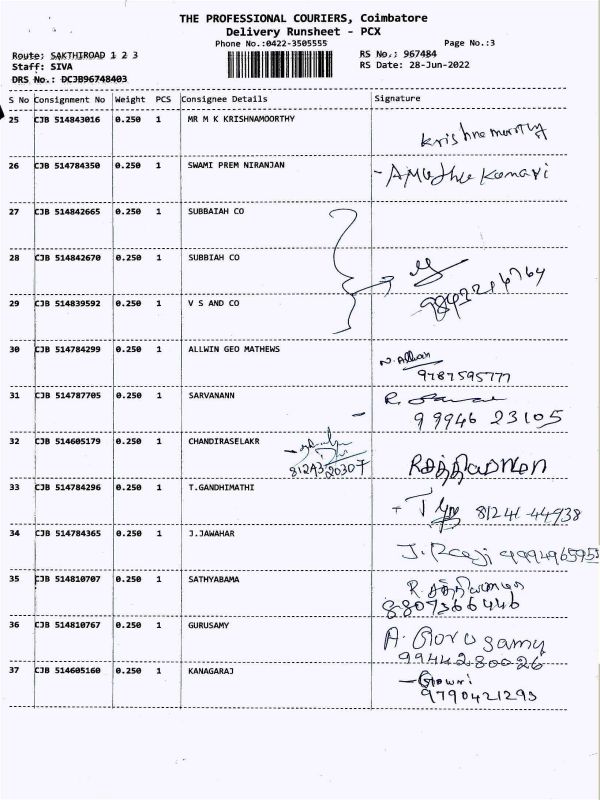 THE PROFESSIONAL COURIERS, Coimbatore
Delivery Runsheet - PCX
Phone No.:0422-3505555
Page No.:3
Route: SAKTHIROAD 1 2 3
RS No.: 967484
Staff: SIVA
RS Date: 28-Jun-2022
DRS No.: DCJB96748403
S No Consignment No Weight PCS Consignee Details Signature
25 CJB 514843016 0.250 1 MR M K KRISHNAMOORTHY
Krishnamoorthy
26 CJB 514784350 0.250 1 SWAMI PREM NIRANJAN
27 CJB 514842665 0.250 1 SUBBAIAH CO
28 CJB 514842670 0.250 1 SUBBIAH CO
29 CJB 514839592 0.250 1 V S AND CO
30 CJB 514784299 0.250 1 ALLWIN GEO MATHEWS
31 CJB 514787705 0.250 1 SARVANANN
99946 23105
32 CJB 514605179 0.250 1 CHANDIRASELAKR
33 CJB 514784296 0.250 1 T.GANDHIMATHI
81241-44938
34 CJB 514784365 0.250 1 J.JAWAHAR
35 CJB 514810707 0.250 1 SATHYABAMA
8807366446
36 CJB 514810767 0.250 1 GURUSAMY
A. Gorusamy
9944280026
37 CJB 514605160 0.250 1 KANAGARAJ
Gowri
9790421293